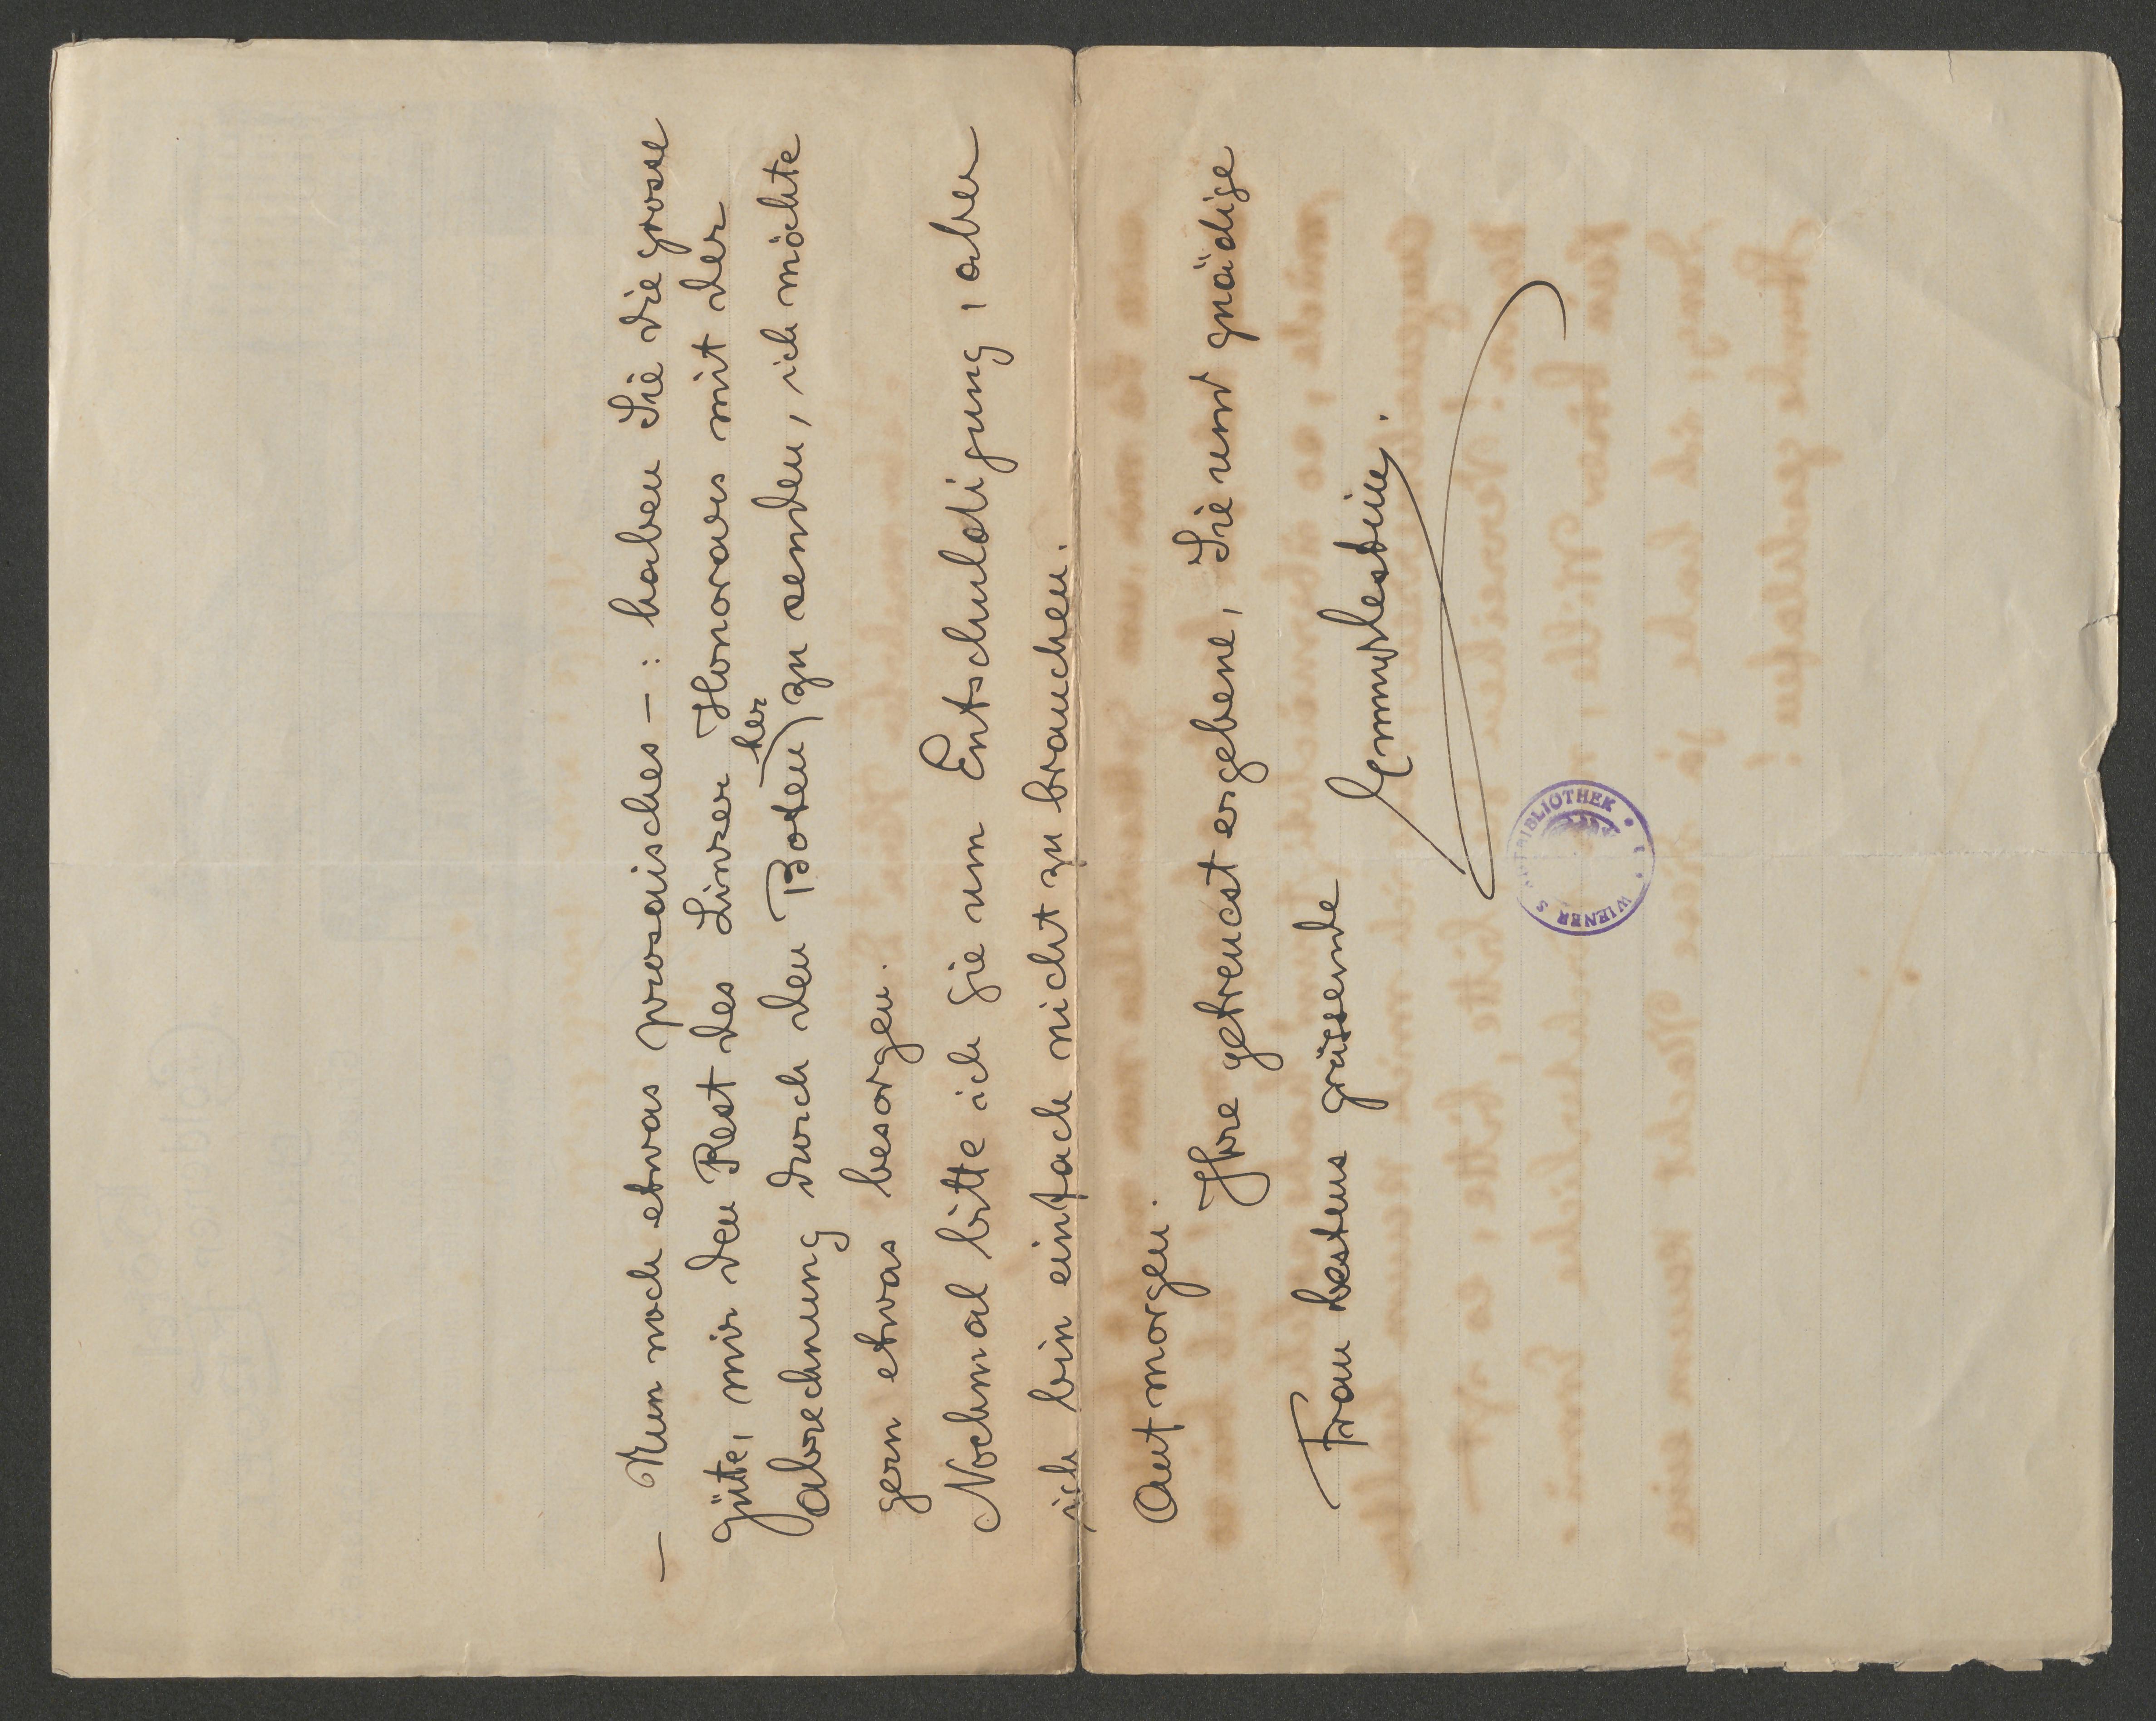 — Nun noch etwas prosaisches — : haben Sie die grosse
Güte, mir den Rest des Linzer Honorars mit der
Abrechnung durch den Boten her zu senden, ich möchte
gern etwas besorgen.
Nochmal bitte ich Sie um Entschuldigung, aber
ich bin einfach nicht zu brauchen.
Auf morgen.
Ihre getreuest ergebene, Sie und gnädige
Frau bestens grüssende
WIENER S BIBLIOTHEK